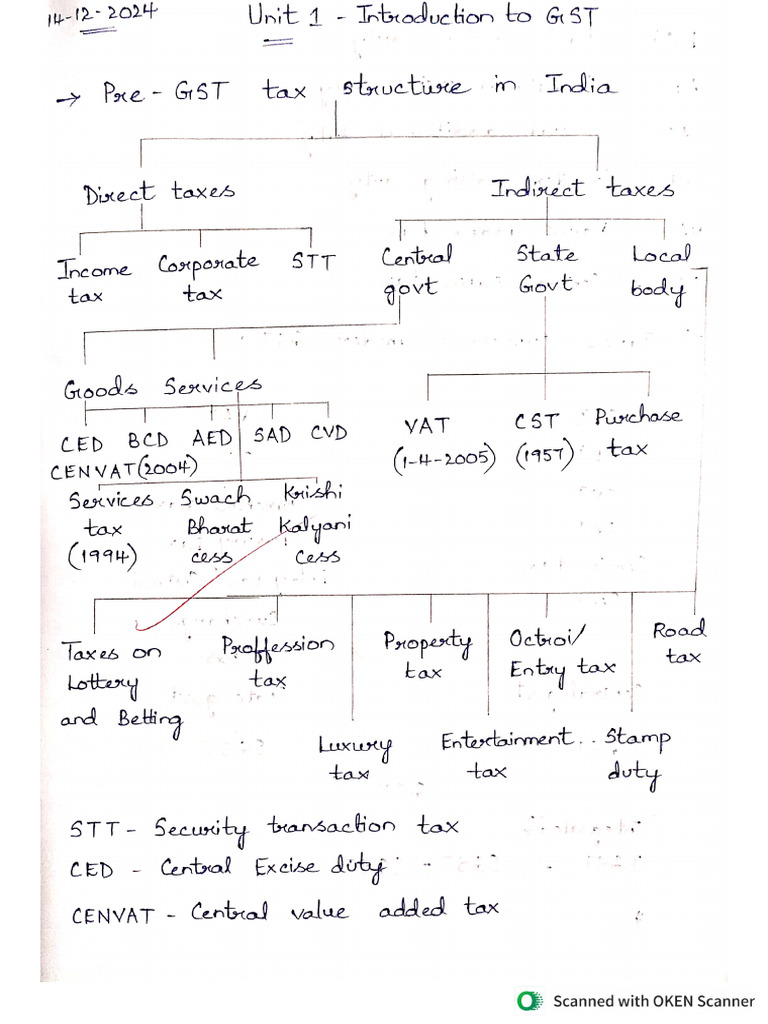 14-12-2024
Unit 1 - Introduction to GST
→ Pre-GST tax structure in India
Direct taxes Indirect taxes
Income tax
Corporate tax
STT
Central govt
State Govt
Local body
Goods Services
CED BCD AED SAD CVD
CENVAT(2004)
VAT (1-4-2005)
CST (1957)
Purchase tax
Services tax (1994)
Swach Bharat cess
Krishi Kalyani Cess
Taxes on Lottery and Betting
Proffession tax
Property tax
Octroi/ Entry tax
Road tax
Luxury tax
Entertainment tax
Stamp duty
STT - Security transaction tax
CED - Central Excise duty
CENVAT - Central value added tax
Scanned with OKEN Scanner